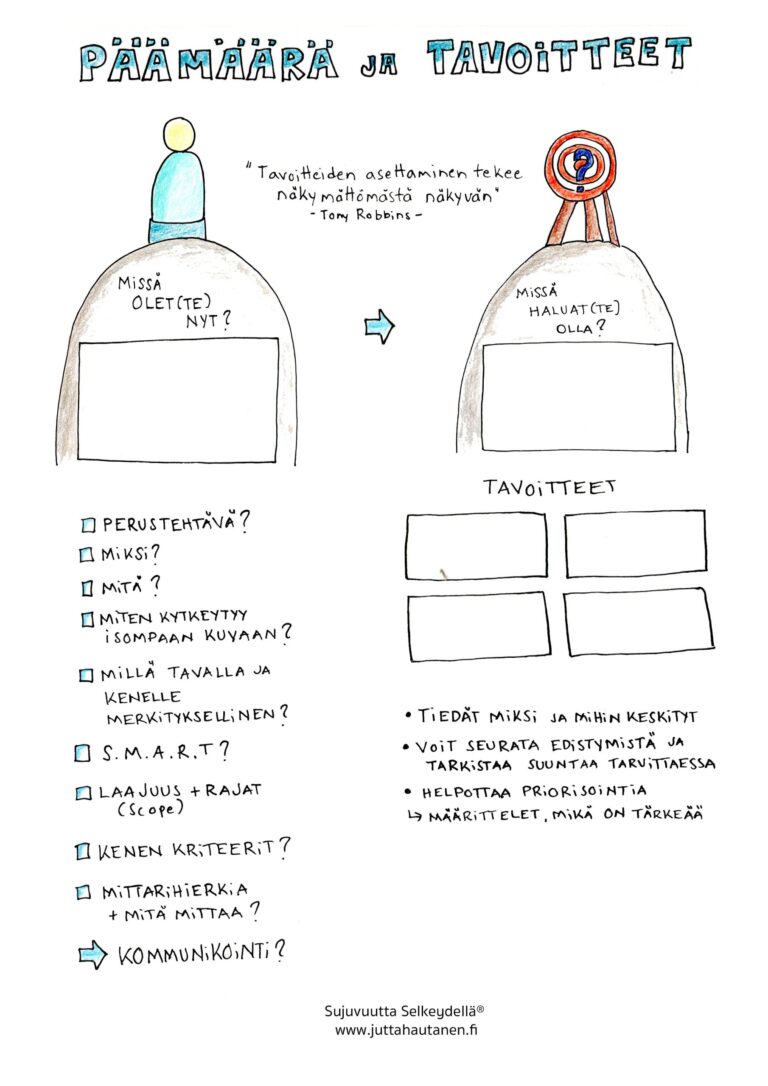 PÄÄMÄÄRÄ JA TAVOITTEET
"Tavoitteiden asettaminen tekee
näkymättömästä näkyvän"
- Tony Robbins -
MISSÄ
OLET(TE)
NYT?
MISSÄ
HALUAT(TE)
OLLA?
?
TAVOITTEET
PERUSTEHTÄVÄ?
MIKSI?
MITÄ?
MITEN KYTKEYTYY
ISOMPAAN KUVAAN?
MILLÄ TAVALLA JA
KENELLE
MERKITYKSELLINEN?
S.M.A.R.T?
LAAJUUS + RAJAT
(Scope)
KENEN KRITEERIT?
MITTARIHIERKIA
+ MITÄ MITTAA?
KOMMUNIKOINTI?
• TIEDÄT MIKSI JA MIHIN KESKITYT
• VOIT SEURATA EDISTYMISTÄ JA
TARKISTAA SUUNTAA TARVITTAESSA
• HELPOTTAA PRIORISOINTIA
↳ MÄÄRITTELET, MIKÄ ON TÄRKEÄÄ
Sujuvuutta Selkeydellä®
www.juttahautanen.fi